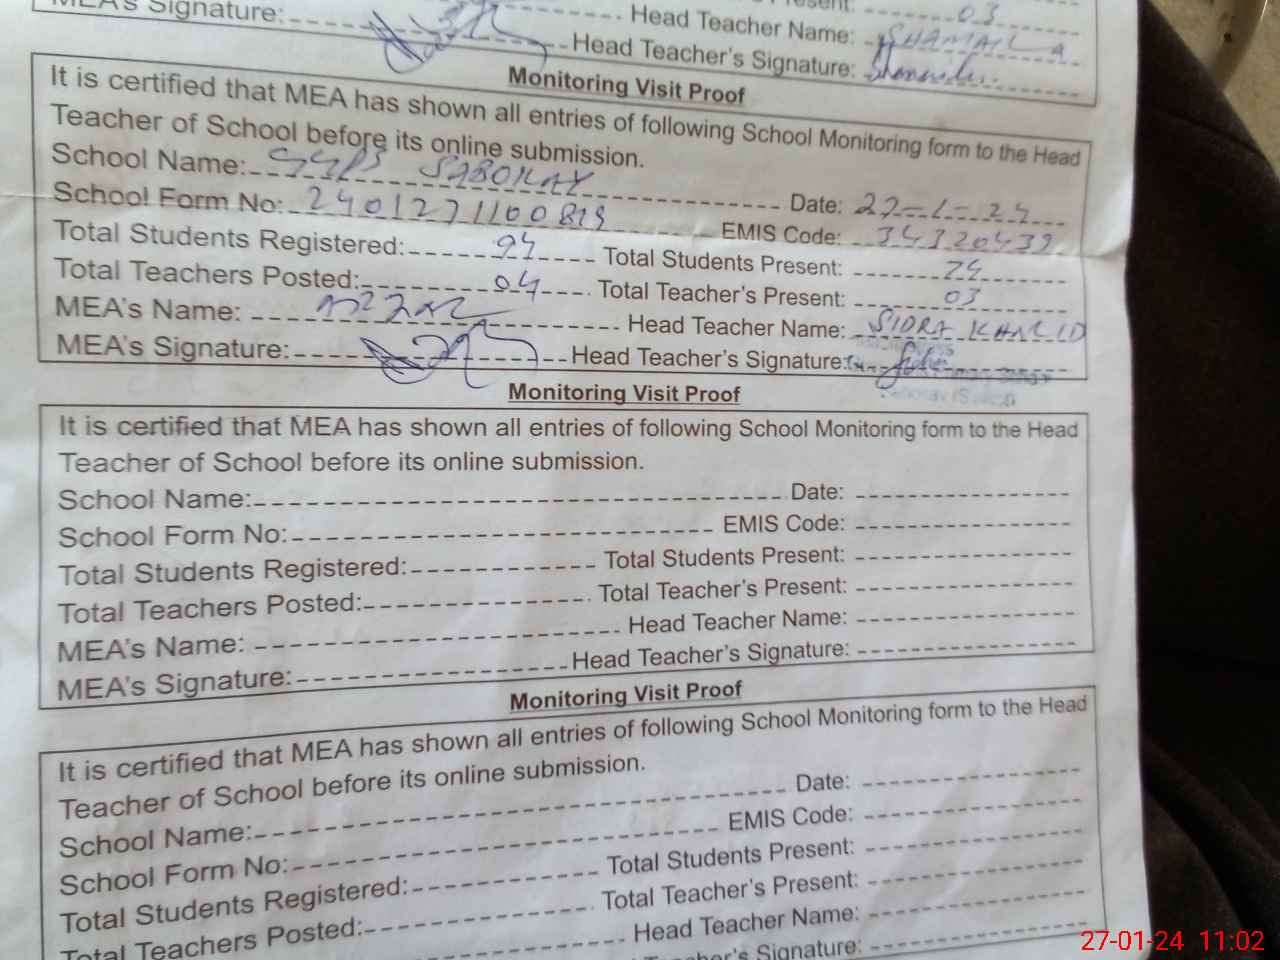 MEA's Signature: Head Teacher Name: SHAMAILA
Present: 03
Head Teacher's Signature:
Monitoring Visit Proof
It is certified that MEA has shown all entries of following School Monitoring form to the Head
Teacher of School before its online submission.
School Name: GGPS SABOKAY Date: 27-1-24
School Form No: 2401271100819 EMIS Code: 34320439
Total Students Registered: 94 Total Students Present: 74
Total Teachers Posted: 04 Total Teacher's Present: 03
MEA's Name: Head Teacher Name: SIDRA KHALID
MEA's Signature: Head Teacher's Signature:
Monitoring Visit Proof
It is certified that MEA has shown all entries of following School Monitoring form to the Head
Teacher of School before its online submission.
School Name: Date:
School Form No: EMIS Code:
Total Students Registered: Total Students Present:
Total Teachers Posted: Total Teacher's Present:
MEA's Name: Head Teacher Name:
MEA's Signature: Head Teacher's Signature:
Monitoring Visit Proof
It is certified that MEA has shown all entries of following School Monitoring form to the Head
Teacher of School before its online submission.
School Name: Date:
School Form No: EMIS Code:
Total Students Registered: Total Students Present:
Total Teachers Posted: Total Teacher's Present:
Head Teacher Name:
Signature:
27-01-24 11:02